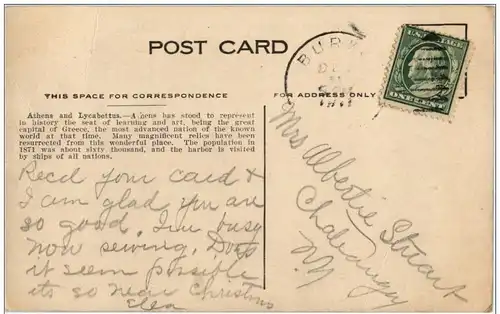 POST CARD
THIS SPACE FOR CORRESPONDENCE
FOR ADDRESS ONLY
Athens and Lycabettus.—Athens has stood to represent
in history the seat of learning and art, being the great
capital of Greece, the most advanced nation of the known
world at that time. Many magnificent relics have been
resurrected from this wonderful place. The population in
1871 was about sixty thousand, and the harbor is visited
by ships of all nations.
Recd your card &
I am glad you are
so good. I'm busy
now sewing. Don't
it seem possible
its so near Christmas
Ella
BURK
Mrs Albertie Stuart
Chateaugay
N.Y.